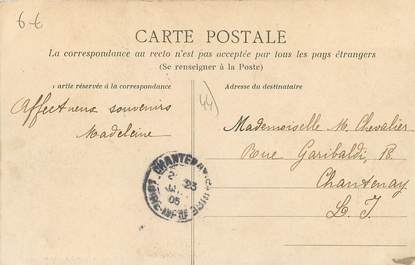 6-6
CARTE POSTALE
La correspondance au recto n'est pas acceptée par tous les pays étrangers
(Se renseigner à la Poste)
artie réservée à la correspondance
Affectueux souvenirs
Madeleine
44)
Adresse du destinataire
Mademoiselle M. Chevalier
Rue Garibaldi, 18
Chantenay
L. I.
CHANTENAY-SUR-LOIRE
23
05
LOIRE-INFRE